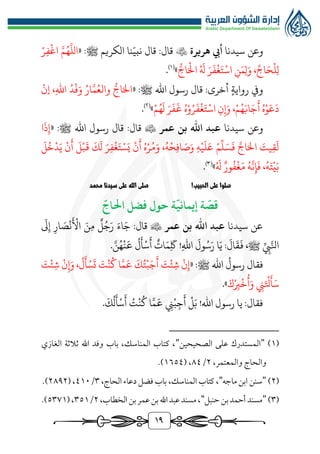 إدارة الشؤون العربية
Arabic Department Of Dawateislami
وعن سيدنا أبي هريرة ﷺ قال: قال نبيّنا الكريم ﷺ: «اللَّهُمَّ اغْفِرْ
لِلْحَاجِّ، وَلِمَنِ اسْتَغْفَرَ لَهُ الْحَاجُّ»(١).
وفي روايةٍ أخرى: قال رسول الله ﷺ: «الحَاجُّ والعُمَّارُ وَفْدُ اللهِ، إنْ
دَعَوْهُ أَجَابَهُمْ، وَإِنِ اسْتَغْفَرُوْهُ غَفَرَ لَهُمْ»(٢).
وعن سيدنا عبد الله بن عمر قال: قال رسول الله ﷺ: «إِذَا
لَقِيتَ الحَاجَّ فَسَلِّمْ عَلَيْهِ وَصَافِحْهُ، وَمُرْهُ أَنْ يَسْتَغْفِرَ لَكَ قَبْلَ أَنْ يَدْخُلَ
بَيْتَهُ، فَإِنَّهُ مَغْفُورٌ لَهُ»(٣).
صلوا على الحبيب! صلى الله على سيدنا محمد
قصّة إيمانيّة حول فضل الحاجّ
عن سيدنا عبد الله بن عمر قال: جَاءَ رَجُلٌ مِنَ الْأَنْصَارِ إِلَى
النَّبِيِّ ﷺ، فَقَالَ: يَا رَسُولَ اللهِ! كَلِمَاتٌ أَسْأَلُ عَنْهُنَّ.
فقال رسولُ الله ﷺ: «إِنْ شِئْتَ أَجَبْتُكَ عَمَّا كُنْتَ تَسْأَلُ، وَإِنْ شِئْتَ
سَأَلْتَنِي وَأُخْبِرُكَ».
فقال: يا رسول الله! بَلْ أَجِبْنِي عَمَّا كُنْتُ أَسْأَلُكَ.
(١) "المستدرك على الصحيحين"، كتاب المناسك، باب وفد الله ثلاثة الغازي
والحاج والمعتمر، ٢/ ٨٤، (١٦٥٤).
(٢) "سنن ابن ماجه"، كتاب المناسك، باب فضل دعاء الحاج، ٣/ ٤١٠، (٢٨٩٢).
(٣) "مسند أحمد بن حنبل"، مسند عبد الله بن عمر بن الخطاب، ٢/ ٣٥١، (٥٣٧١).
١٩